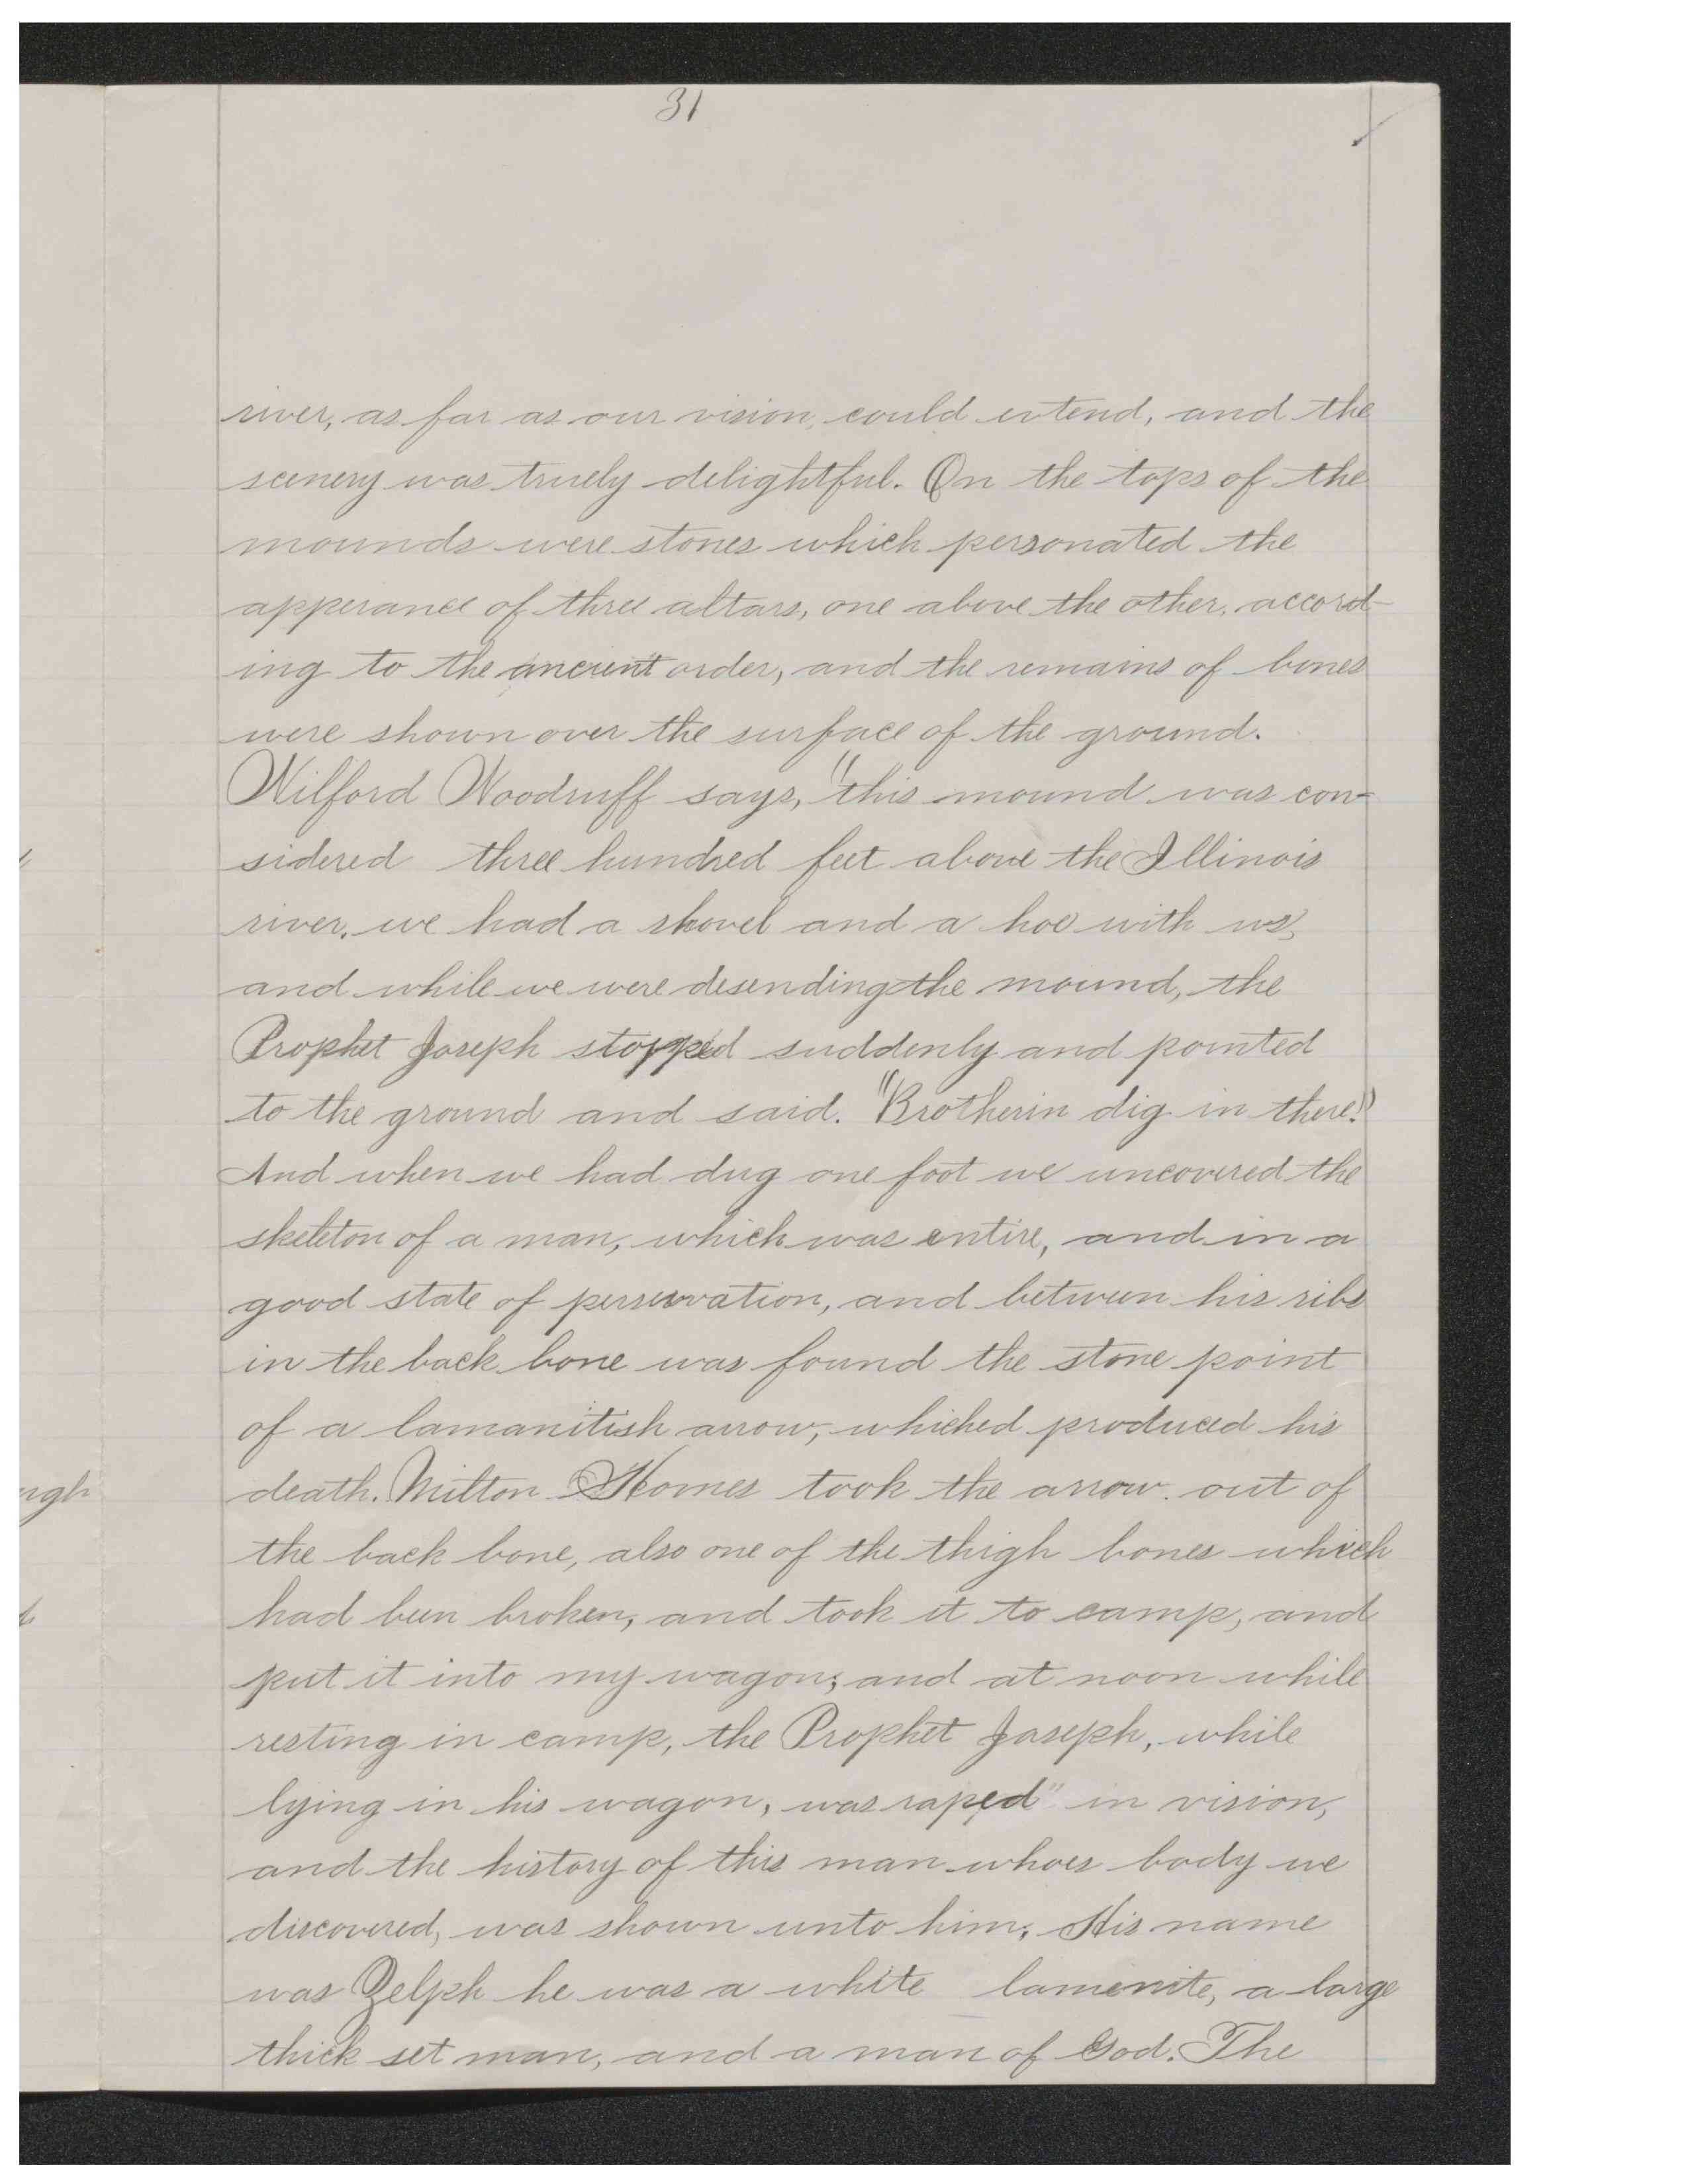 31
river, as far as our vision, could extend, and the
scenery was truely delightful. On the tops of the
mounds were stones which personated the
apperance of three altars, one above the other, accord-
ing to the ancient order, and the remains of bones
were shown over the surface of the ground.
Wilford Woodruff says, "this mound was con-
sidered three hundred feet above the Illinois
river. we had a shovel and a hoe with us,
and while we were desending the mound, the
Prophet Joseph stopped suddenly and pointed
to the ground and said. "Brotherin dig in there!"
And when we had dug one foot we uncovered the
skeleton of a man, which was entire, and in a
good state of perservation, and between his ribs
in the back bone was found the stone point
of a lamanitish arrow, whiched produced his
death. Milton Homes took the arrow out of
the back bone, also one of the thigh bones which
had been broken, and took it to camp, and
put it into my wagon; and at noon while
resting in camp, the Prophet Joseph, while
lying in his wagon, was raped" in vision,
and the history of this man whoes body we
discovered, was shown unto him. His name
was Zelph he was a white lamenite, a large
thick set man, and a man of God. The
ugh